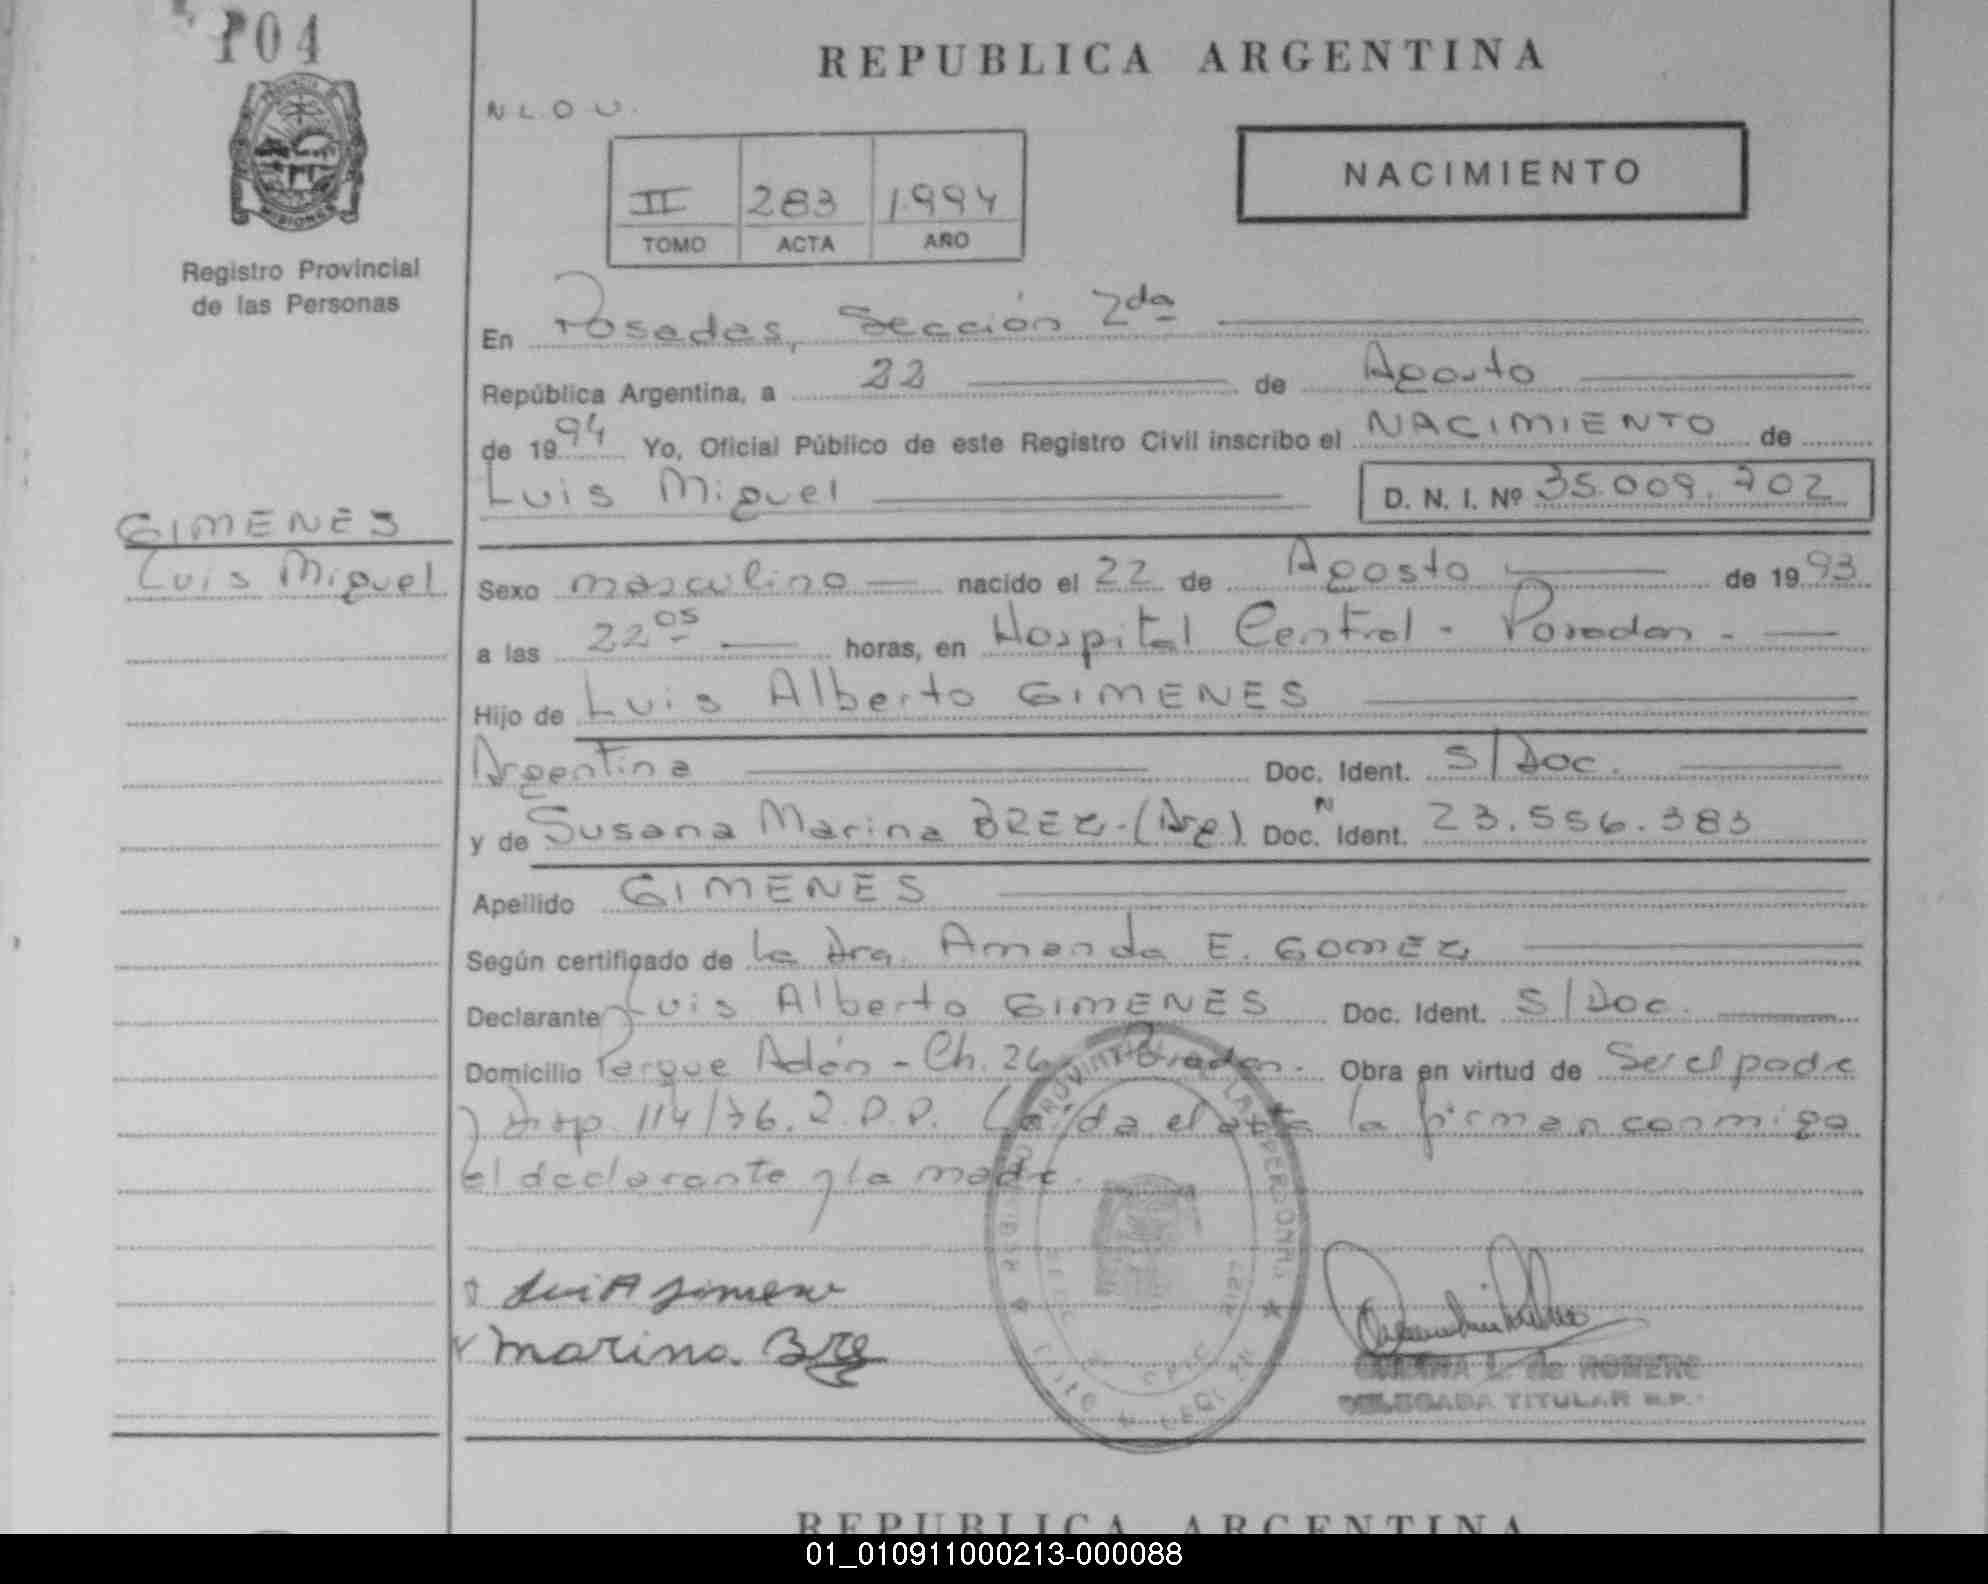 104
REPUBLICA ARGENTINA
N L O U.
II 283 1994
TOMO ACTA AÑO
NACIMIENTO
MISIONES
Registro Provincial
de las Personas
En Posadas, Sección 2da
República Argentina, a 22 de Agosto
de 1994 Yo, Oficial Público de este Registro Civil inscribo el NACIMIENTO de
Luis Miguel D. N. I. Nº 35.009.702
GIMENES
Luis Miguel
Sexo masculino nacido el 22 de Agosto de 1993
a las 22 05 horas, en Hospital Central - Posadas -
Hijo de Luis Alberto GIMENES
Argentina Doc. Ident. S/Doc.
y de Susana Marina BREZ - (Arg) Doc. Ident. 23.556.383
Apellido GIMENES
Según certificado de la Dra. Amanda E. GOMEZ
Declarante Luis Alberto GIMENES Doc. Ident. S/Doc.
Domicilio Parque Adán - Ch. 26 - Posadas. Obra en virtud de Ser el padre
y Disp. 114/76. R.P.P. Leída el acta la firman conmigo
el declarante y la madre.
Luis A Gimenes
Marina Bre
L. de ROMERO
DELEGADA TITULAR R.P.
REPUBLICA ARGENTINA
01_010911000213-000088